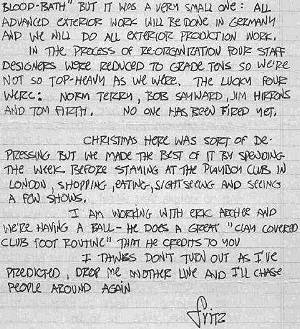 BLOOD-BATH" BUT IT WAS A VERY SMALL ONE: ALL
ADVANCED EXTERIOR WORK WILL BE DONE IN GERMANY
AND WE WILL DO ALL EXTERIOR PRODUCTION WORK.
IN THE PROCESS OF REORGANIZATION FOUR STAFF
DESIGNERS WERE REDUCED TO GRADE TENS SO WE'RE
NOT SO TOP-HEAVY AS WE WERE. THE LUCKY FOUR
WERE: NORM TERRY, BOB SAYWARD, JIM HIRONS
AND TOM FIRTH. NO ONE HAS BEEN FIRED YET.
CHRISTMAS HERE WAS SORT OF DE-
PRESSING BUT WE MADE THE BEST OF IT BY SPENDING
THE WEEK BEFORE STAYING AT THE PLAYBOY CLUB IN
LONDON, SHOPPING, EATING, SIGHTSEEING AND SEEING
A FEW SHOWS.
I AM WORKING WITH ERIC ARCHER AND
WE'RE HAVING A BALL - HE DOES A GREAT "CLAY COVERED
CLUB FOOT ROUTINE" THAT HE CREDITS TO YOU
I THINGS DON'T TURN OUT AS I'VE
PREDICTED, DROP ME ANOTHER LINE AND I'LL CHASE
PEOPLE AROUND AGAIN
Fritz